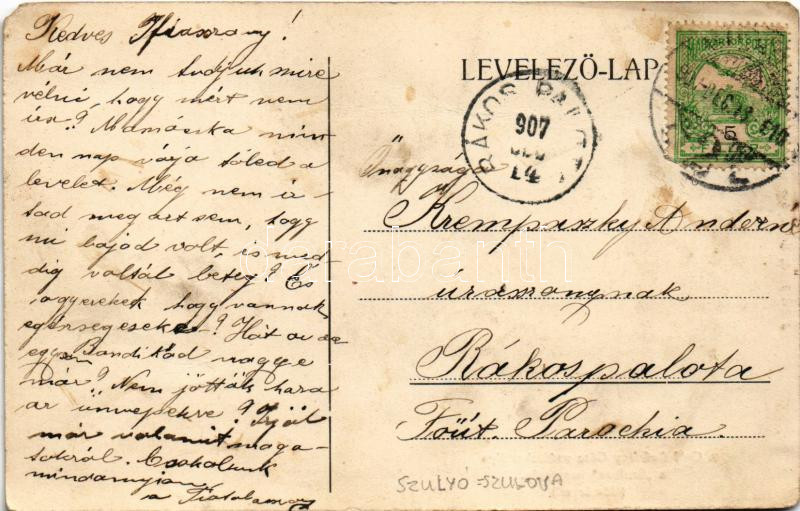 Kedves
Már nem tudjuk mire
vélni, hogy mért nem
írsz? Mamácska min
den nap várja tőled a
levelet. Még nem ír
tad meg azt sem, hogy
mi bajod volt, is med
dig voltál beteg? És
a gyerekek hogy vannak
egésségesek-e? Hát az a
egyem Bandikád nagy e
már? Nem jöttök haza
az ünnepekre? Írjál
már valamit maga
tokról. Csókolunk
mindanyian
a
LEVELEZŐ-LAP
RÁKOS PALOTA
907
DEC
14
5
Őnagysága
Krempaszky Andorné
úrasszonynak
Rákospalota
Főút. Parochia.
SZULYÓ = SZULOVA
darabanth